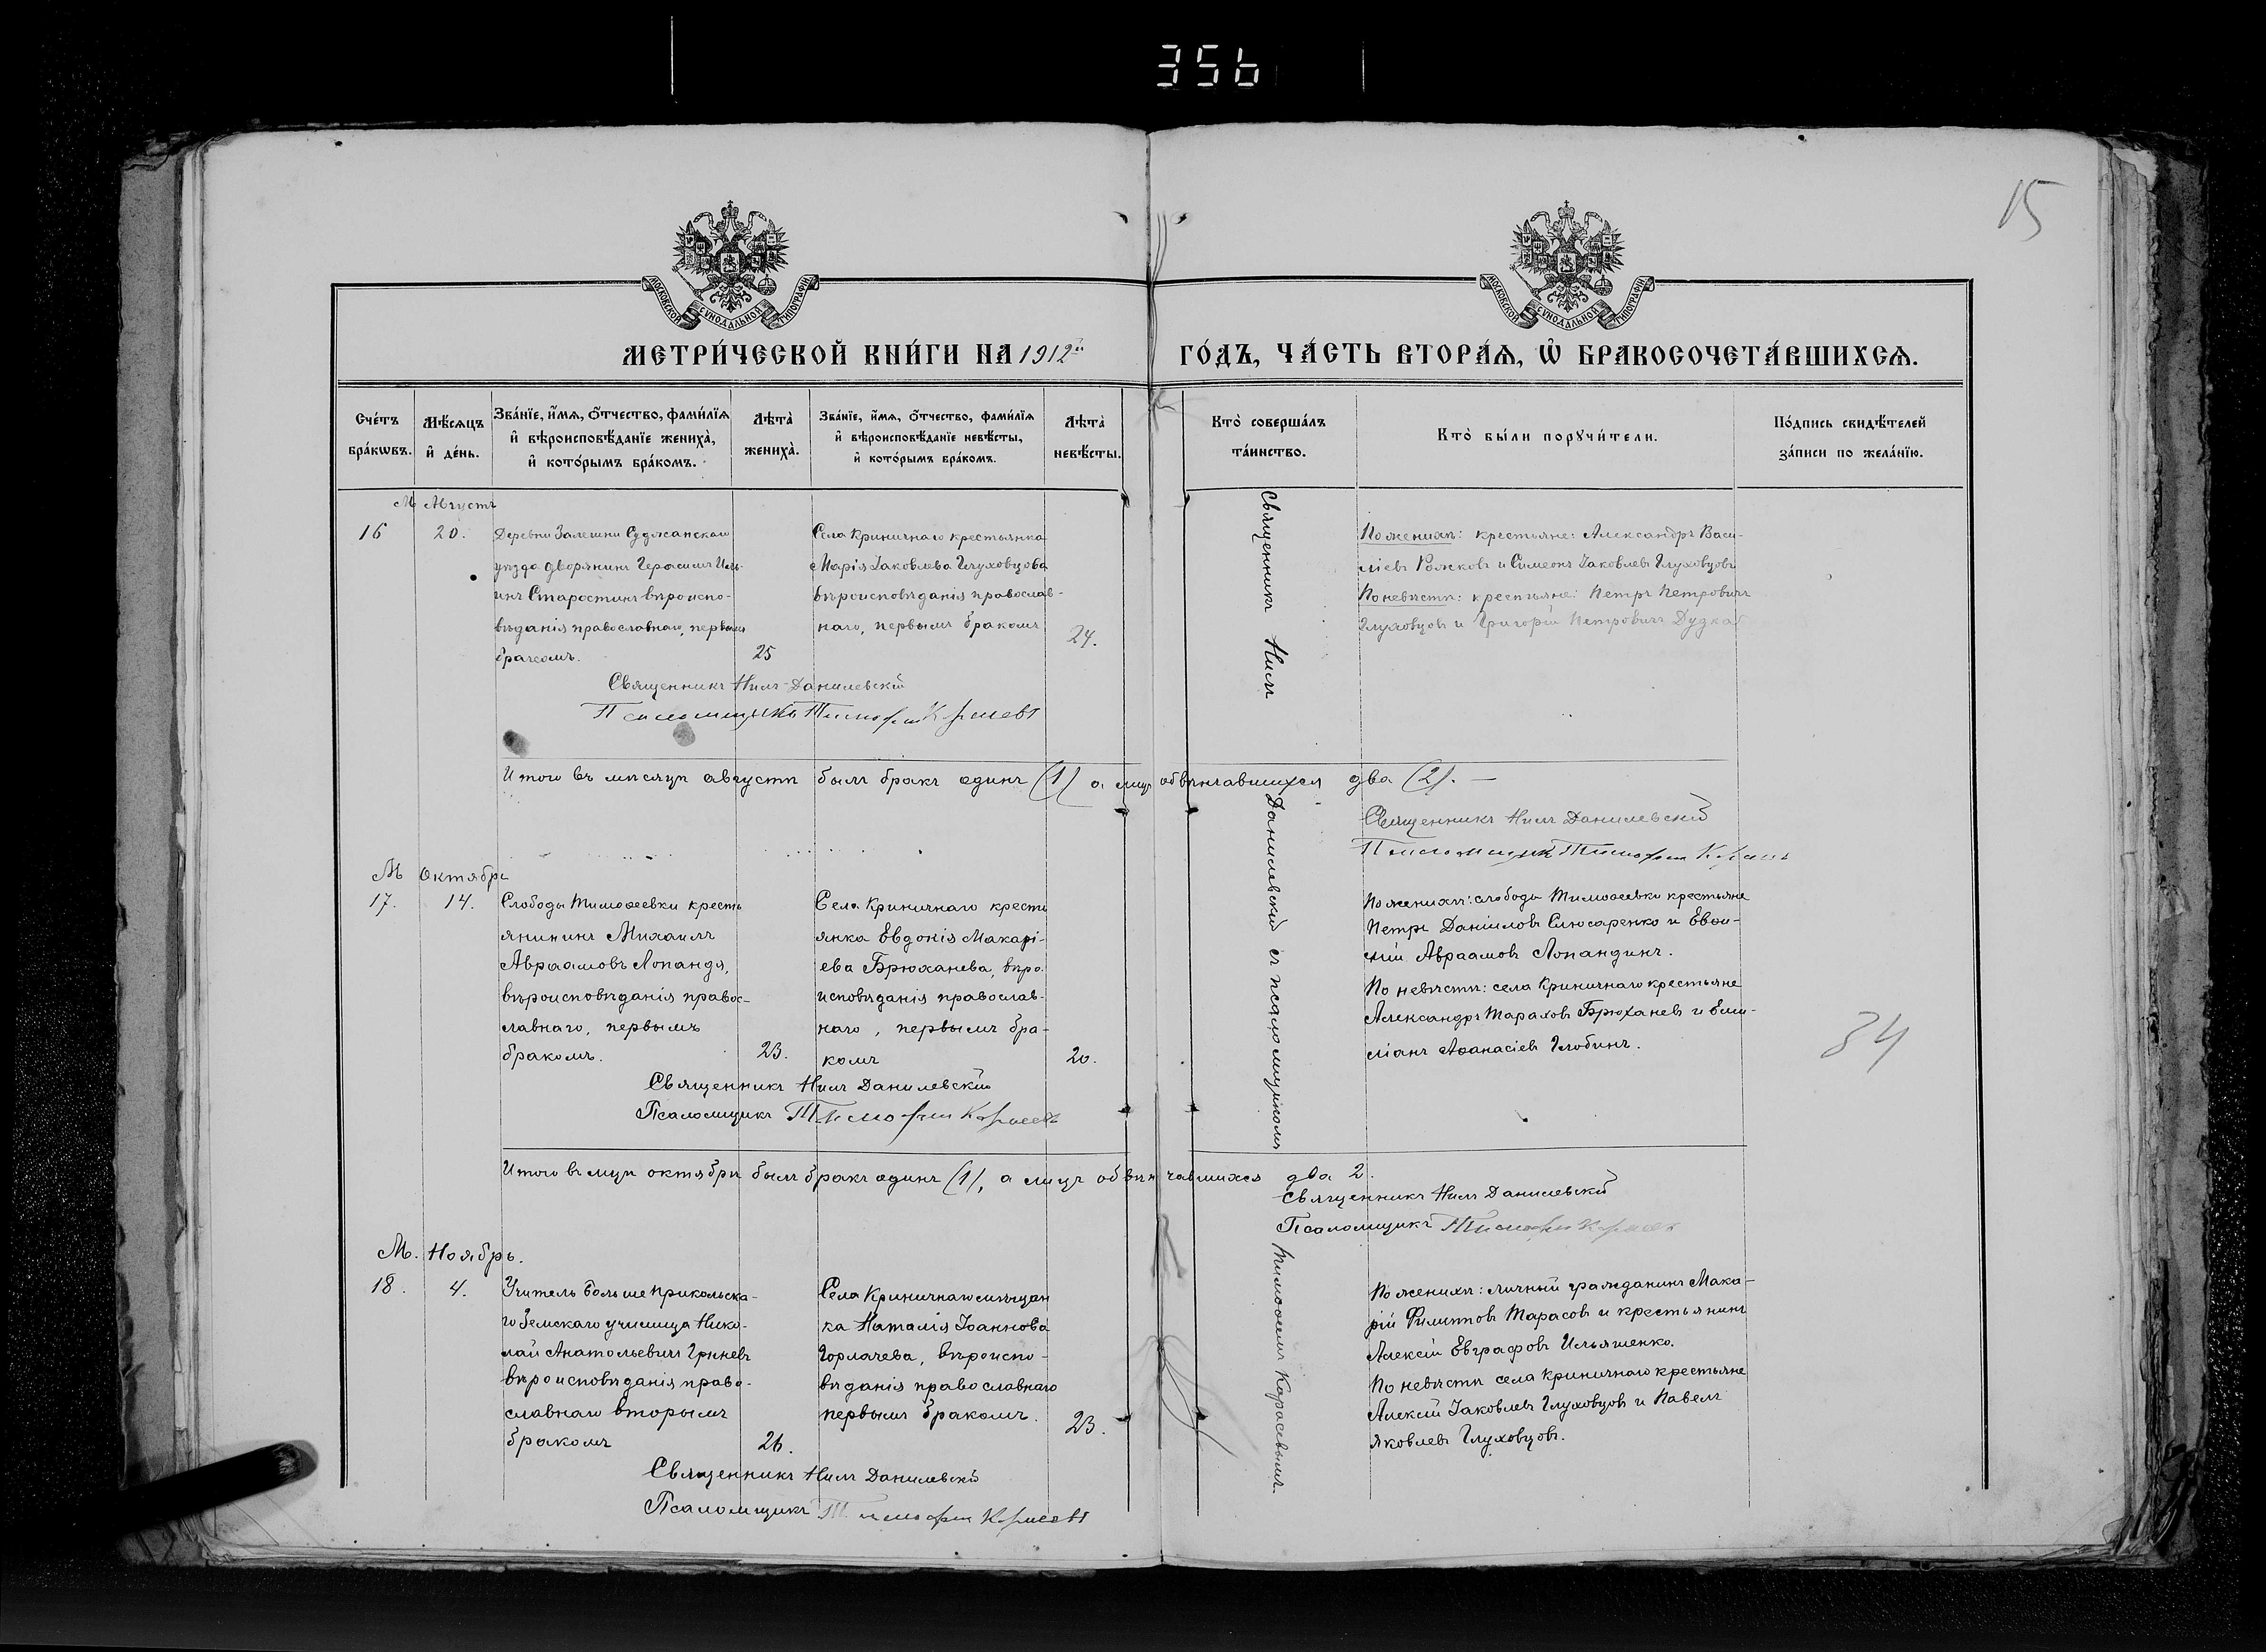 356
15
МОСКОВСКОЙ СѴНОДАЛЬНОЙ ТИПОГРАФІИ
МОСКОВСКОЙ СѴНОДАЛЬНОЙ ТИПОГРАФІИ
МЕТРИ́ЧЕСКОЙ КНИ́ГИ НА 1912й ГО́ДЪ, ЧА́СТЬ ВТОРА́Я, Ѡ҆ БРАКОСОЧЕТА́ВШИХСѦ.
Сче́тъ бра́кѡвъ.
Мѣ́сѧцъ и҆ де́нь.
Зва́нїе, и҆́мѧ, ѻ҆́тчество, фами́лїѧ
и҆ вѣроисповѣ́данїе жениха̀,
и҆ кото́рымъ бра́комъ.
Лѣта̀ жениха̀.
Зва́нїе, и҆́мѧ, ѻ҆́тчество, фами́лїѧ
и҆ вѣроисповѣ́данїе невѣ́сты,
и҆ кото́рымъ бра́комъ.
Лѣта̀ невѣ́сты.
Кто̀ соверша́лъ
та́инство.
Кто̀ бы́ли порꙋчи́тели.
По́дпись свидѣ́телей
за́писи по жела́нїю.
М Августъ
16
20.
Деревни Залешни Суджанскаго
уѣзда дворянинъ Герасимъ Иль-
инъ Старостинъ вѣроиспо-
вѣданія православнаго, первымъ
бракомъ.
25
Села Криничнаго крестьянка
Марія Іаковлева Глуховцова
вѣроисповѣданія православ-
наго, первымъ бракомъ
24.
Священникъ Нилъ Данилевскій
Псаломщикъ Тимофей Карасевъ
По женихѣ: крестьяне: Александръ Васи-
ліевъ Рожковъ и Симеонъ Іаковлевъ Глуховцовъ
По невѣстѣ: крестьяне: Петръ Петровичъ
Глуховцовъ и Григорій Петровичъ Дудка
Итого въ мѣсяцѣ августѣ былъ бракъ одинъ (1) а лицъ обвѣнчавшихся два (2). —
Священникъ Нилъ Данилевскій
Псаломщикъ Тимофей
М Октябрь
17.
14.
Слободы Тимоѳеевки кресть
янининъ Михаилъ
Авраамовъ Лопандя,
вѣроисповѣданія правос-
лавнаго, первымъ
бракомъ.
23.
Села Криничнаго кресть
янка Евдокія Макарі-
ева Брюханева, вѣро
исповѣданія православ-
наго, первымъ бра-
комъ
20.
Священникъ Нилъ Данилевскій
Псаломщикъ Тимофей Карасевъ
По женихѣ: слободы Тимоѳеевки крестьяне
Петръ Даніиловъ Слюсаренко и Евѳи-
мій Авраамовъ Лопандинъ.
По невѣстѣ: села Криничнаго крестьяне
Александръ Тарахов Брюханев и Еми-
ліанъ Аѳанасіев Глобинъ.
34
Итого въ мцѣ октябрѣ былъ бракъ одинъ (1), а лицъ обвѣнчавшихся два 2.
Священникъ Нилъ Данилевскій
Псаломщикъ Тимофей
М. Ноябрь.
18.
4.
Учитель Больше Прикольска-
го Земскаго училища Нико-
лай Анатольевичъ Гриневъ
вѣроисповѣданія право-
славнаго вторымъ
бракомъ
26.
Села Криничнаго мѣщан
ка Наталія Іоаннова
Горлачева, вѣроиспо-
вѣданія православнаго
первымъ бракомъ.
23.
Священникъ Нилъ Данилевскій
Псаломщикъ Тимофей Карасевъ
По женихѣ: личный гражданинъ Мака-
рій Филиппов Тарасов и крестьянинъ
Алексій Евграфовъ Ильяшенко.
По невѣстѣ села Криничнаго крестьяне
Алексій Іаковлевъ Глуховцовъ и Павелъ
Яковлевъ Глуховцовъ.
Священникъ Нилъ Данилевскій съ псаломщикомъ Тимоѳеемъ Карасевымъ.